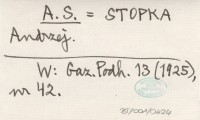 A. S. = STOPKA
Andrzej.
W: Gaz. Podh. 13 (1925),
nr 42.